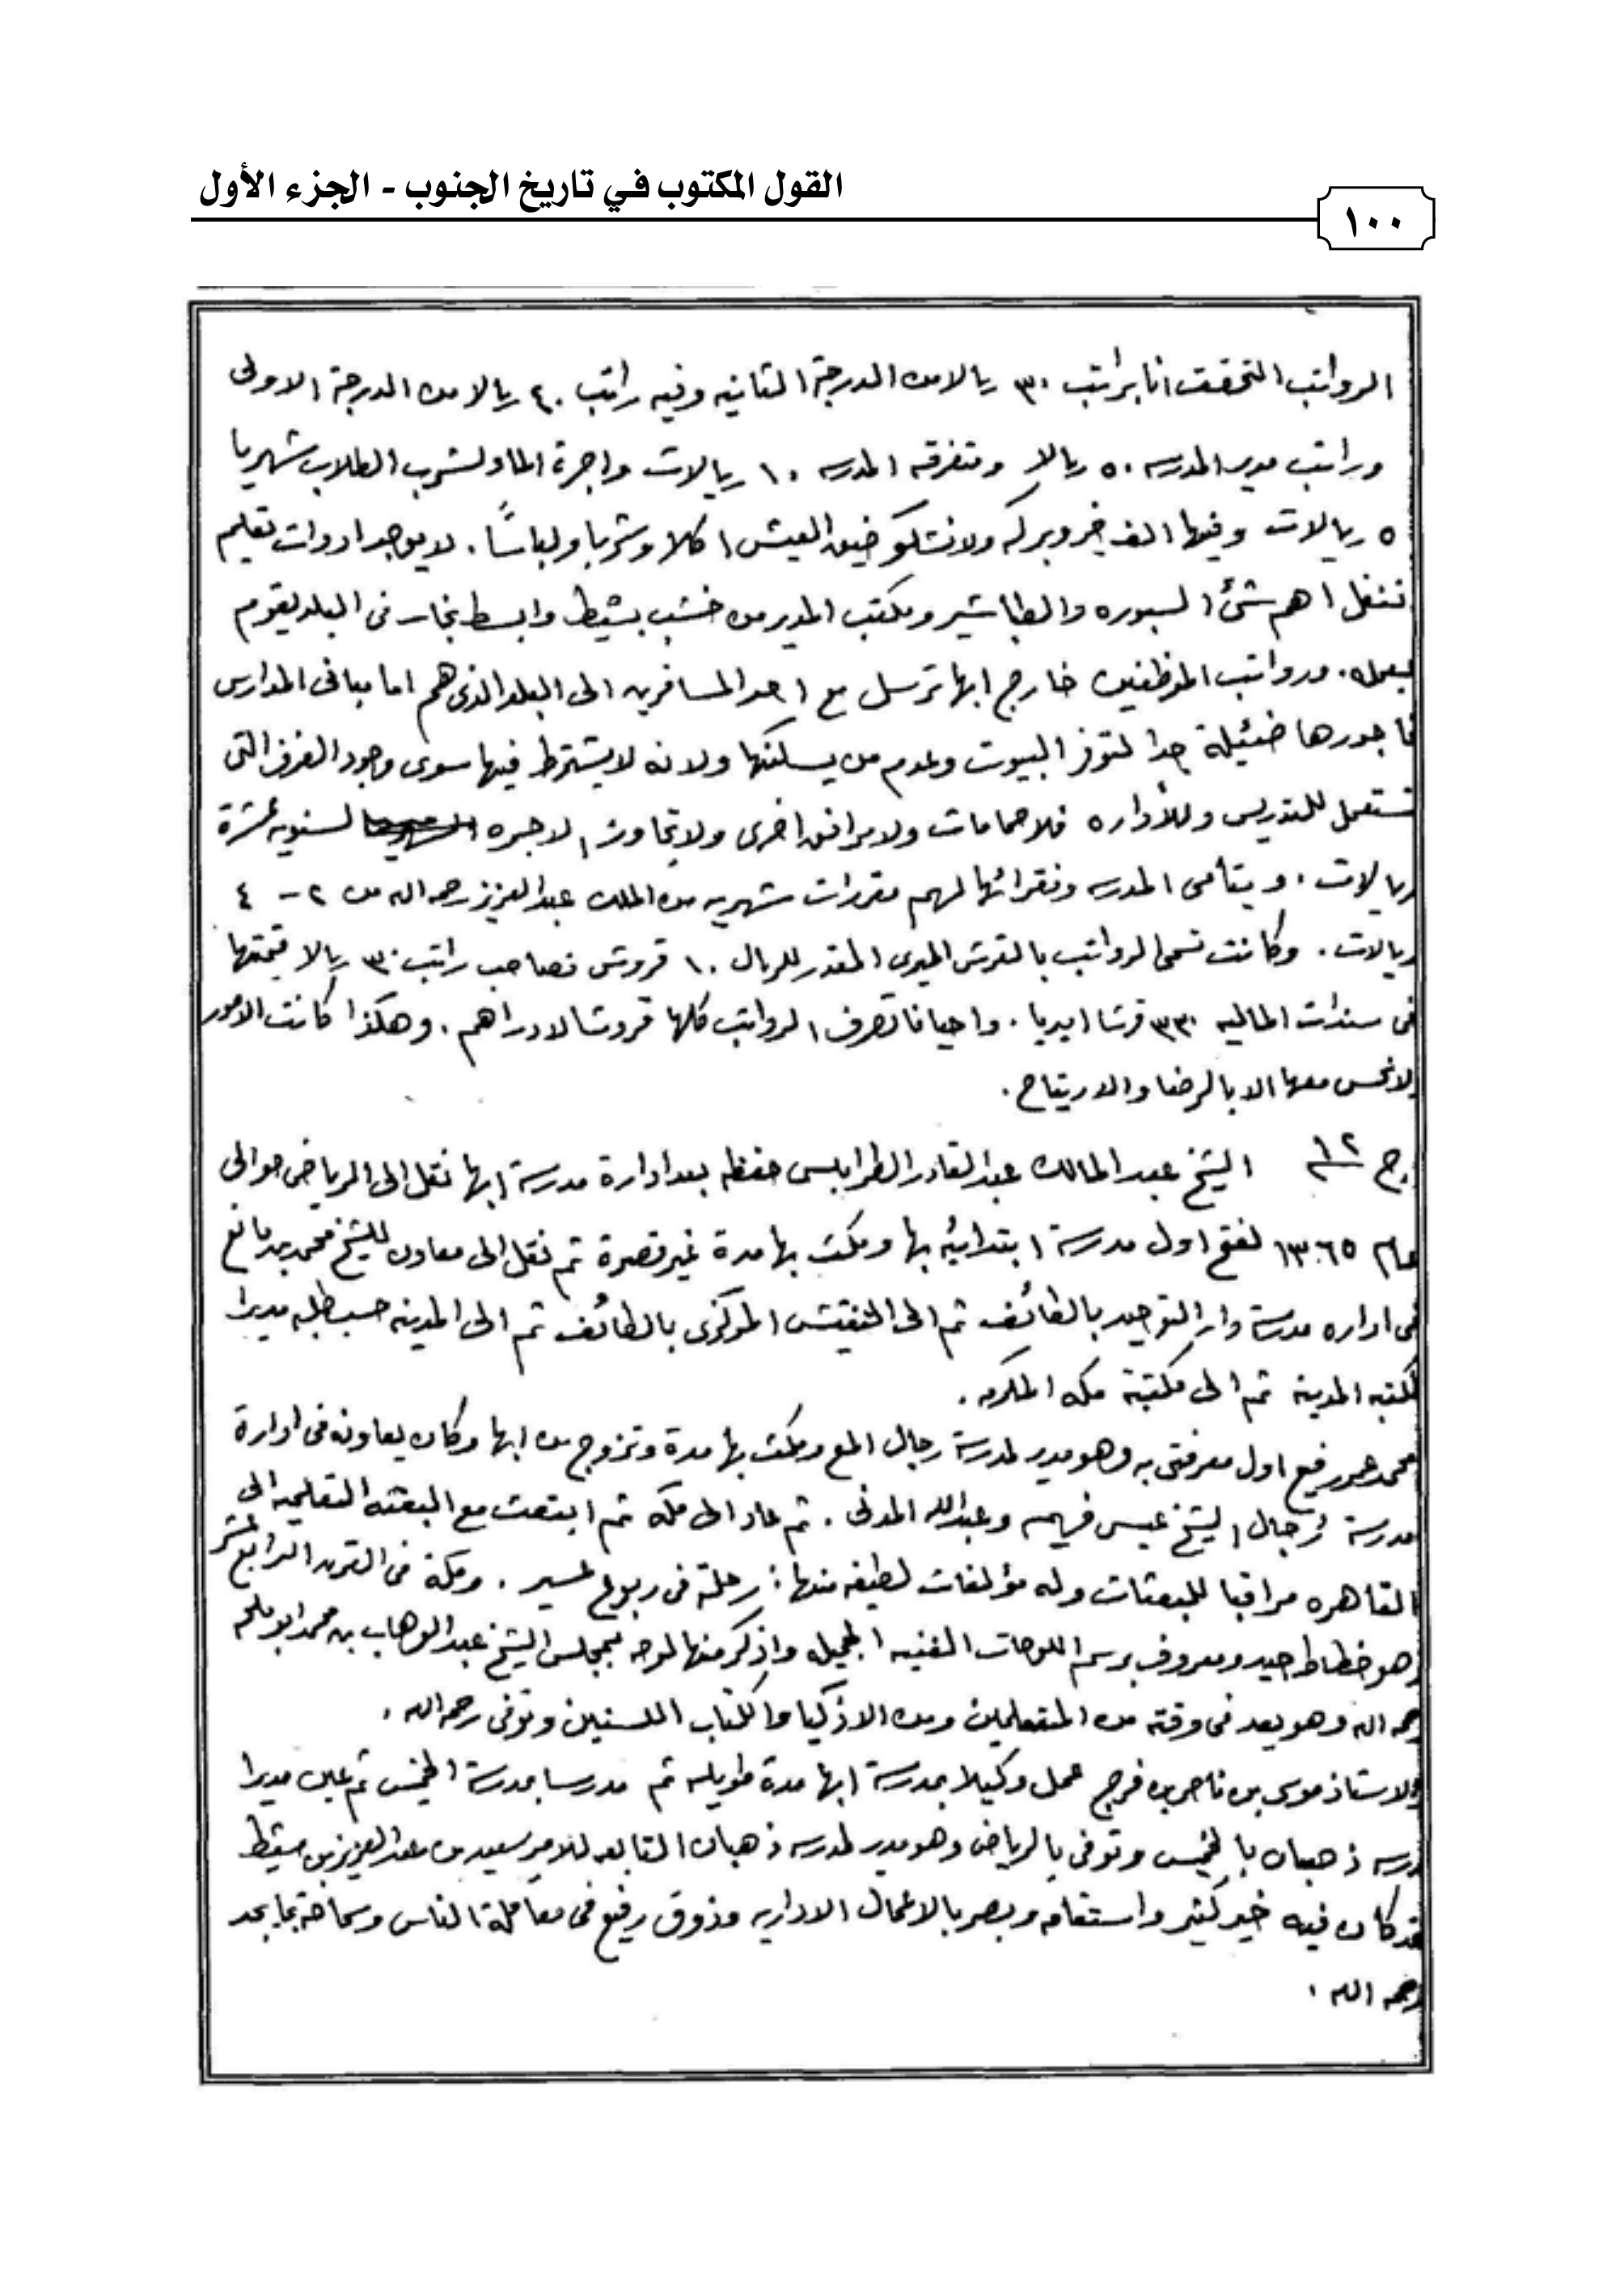 القول المكتوب في تاريخ الجنوب - الجزء الأول
١٠٠
الرواتب التحقت انا براتب ٣٠ ريالا من الدرجة الثانيه وفيه راتب ٤٠ ريالا من الدرجة الاولى
وراتب مدير المدرسه ٥٠ ريالا ومتفرقه المدرسه ١٠ ريالات واجرة الماء لشرب الطلاب شهريا
٥ ريالات وفيها الف خير وبركه ولا نشكو ضيق العيش اكلا وشربا ولباسًا. لا يوجد ادوات تعليم
اهم شئ السبوره والطباشير ومكتب المدير من خشب بسيط وابسط نجار فى البلد يقوم
بعمله. ورواتب الموظفين خارج ابها ترسل مع احد المسافرين الى البلد الذى هم اما مبانى المدارس
فاجورها ضئيلة جدا لتوفر البيوت وعدم من يسكنها ولانه لا يشترط فيها سوى وجود الغرف التى
تستعمل للتدريس وللأداره فلا حمامات ولا مرافق اخرى ولا يتجاوز الاجره السنويه عشرة
ريالات. ويتامى المدرسه وفقرائها لهم مقررات شهريه من الملك عبدالعزيز رحمه الله من ٢ - ٤
ريالات. وكانت تسمى الرواتب بالقرش الميرى المقدر للريال ١٠ قروش فصاحب راتب ٣٠ ريالا قيمتها
فى سندات الماليه ٣٣٠ قرشا اميريا. واحيانا تصرف الرواتب كلها قروشا لا دراهم. وهكذا كانت الامور
ولا نحس معها الا بالرضا والارتياح.
ج ١٢ الشيخ عبد المالك عبد القادر الطرابلسى حفظه بعد ادارة مدرسة ابها نقل الى الرياض حوالى
عام ١٣٦٥ لفتح اول مدرسة ابتدائيه بها ومكث بها مدة غير قصيرة ثم نقل الى معاون للشيخ محمد بن مانع
فى اداره مدرسة دار التوحيد بالطائف ثم الى التفتيش المركزى بالطائف ثم الى المدينه حسب طلبه مديرا
لمكتبه المدينه ثم الى مكتبة مكه المكرمه.
محمد عمر رفيع اول معرفتى به وهو مدير لمدرسة رجال المع ومكث بها مدة وتزوج من ابها وكان يعاونه فى ادارة
مدرسة رجال الشيخ عيسى فهيم وعبدالله المدنى. ثم عاد الى مكه ثم ابتعث مع البعثه التعليميه الى
القاهره مراقبا للبعثات وله مؤلفات لطيفه منها: رحلة فى ربوع عسير. ومكة فى القرن الرابع عشر
وهو خطاط جيد ومعروف برسم اللوحات الفنيه الجميله واذكر منها لوحه بمجلس الشيخ عبدالوهاب بن محمد ابو ملحه
رحمه الله وهو يعد فى وقته من المتعلمين ومن الاذكياء والكتاب اللسنين وتوفى رحمه الله.
والاستاذ موسى بن ناصر بن فرج عمل وكيلا بمدرسة ابها مدة طويله ثم مدرسا بمدرسة الخميس ثم عين مديرا
لمدرسه ذهبان بالخميس وتوفى بالرياض وهو مدير لمدرسه ذهبان التابعه للامير سعيد بن عبدالعزيز بن مشيط
قد كان فيه خير كثير واستقامه وبصر بالاعمال الاداريه وذوق رفيع فى معاملة الناس وسماحة
رحمه الله.